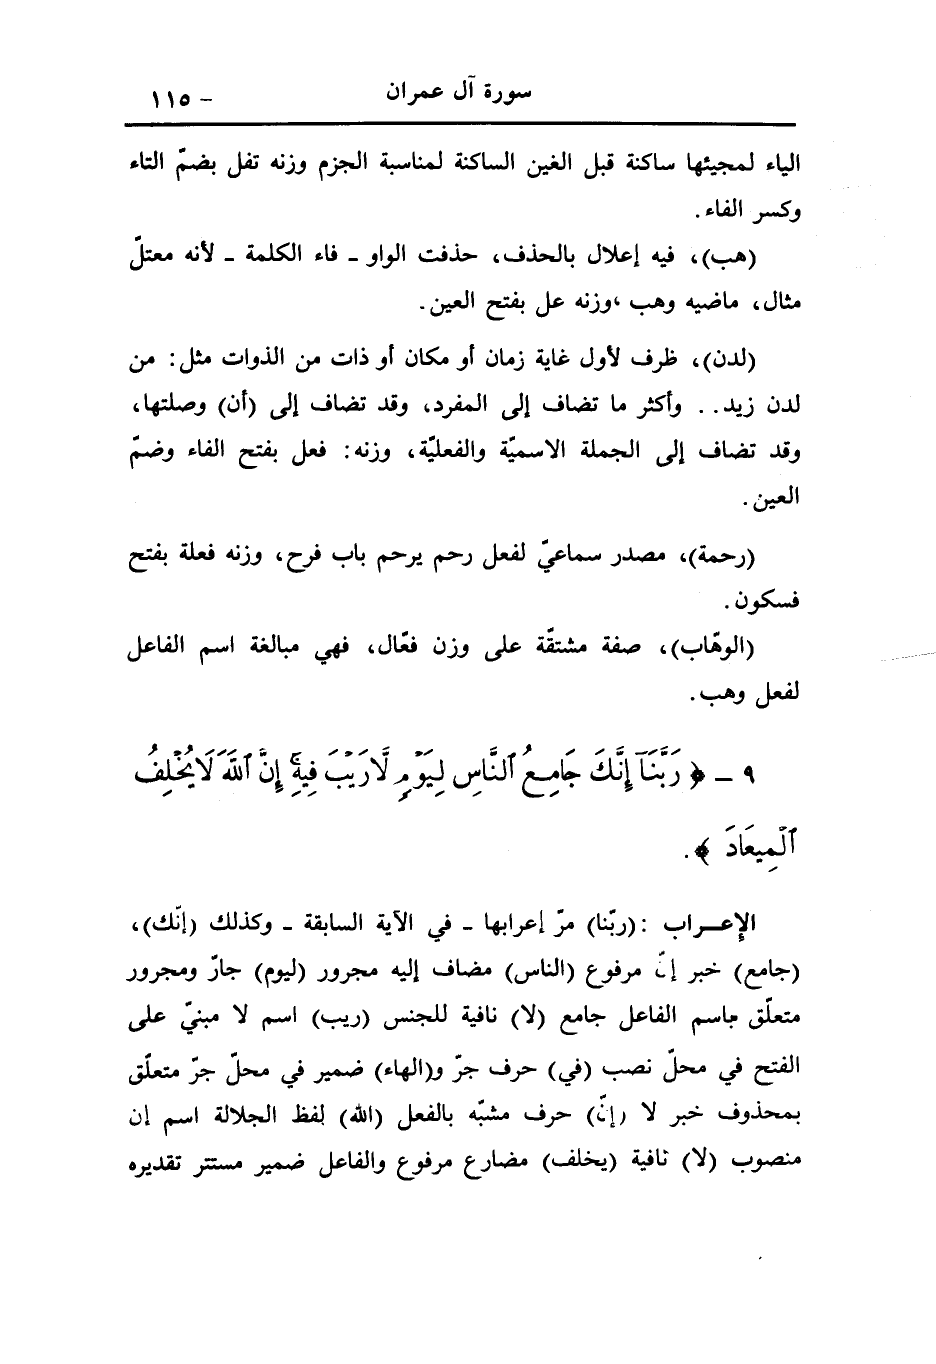 سورة آل عمران
١١٥ -
الياء لمجيئها ساكنة قبل الغين الساكنة لمناسبة الجزم وزنه تفل بضمّ التاء
وكسر الفاء.
(هب)، فيه إعلال بالحذف، حذفت الواو ـ فاء الكلمة ـ لأنه معتلّ
مثال، ماضيه وهب ،وزنه عل بفتح العين.
(لدن)، ظرف لأول غاية زمان أو مكان أو ذات من الذوات مثل: من
لدن زيد.. وأكثر ما تضاف إلى المفرد، وقد تضاف إلى (أن) وصلتها،
وقد تضاف إلى الجملة الاسميّة والفعليّة، وزنه: فعل بفتح الفاء وضمّ
العين.
(رحمة)، مصدر سماعيّ لفعل رحم يرحم باب فرح، وزنه فعلة بفتح
فسكون.
(الوهّاب)، صفة مشتقّة على وزن فعّال، فهي مبالغة اسم الفاعل
لفعل وهب.
٩ ـ ﴿ رَبَّنَآ إِنَّكَ جَامِعُ ٱلنَّاسِ لِيَوْمٍ لَّا رَيْبَ فِيهِ ۚ إِنَّ ٱللَّهَ لَا يُخْلِفُ
ٱلْمِيعَادَ ﴾.
الإعـــراب :(ربّنا) مرّ إعرابها ـ في الآية السابقة ـ وكذلك (إنّك)،
(جامع) خبر إنّ مرفوع (الناس) مضاف إليه مجرور (ليوم) جارّ ومجرور
متعلّق باسم الفاعل جامع (لا) نافية للجنس (ريب) اسم لا مبنيّ على
الفتح في محلّ نصب (في) حرف جرّ و(الهاء) ضمير في محلّ جرّ متعلّق
بمحذوف خبر لا (إنّ) حرف مشبّه بالفعل (الله) لفظ الجلالة اسم إن
منصوب (لا) نافية (يخلف) مضارع مرفوع والفاعل ضمير مستتر تقديره